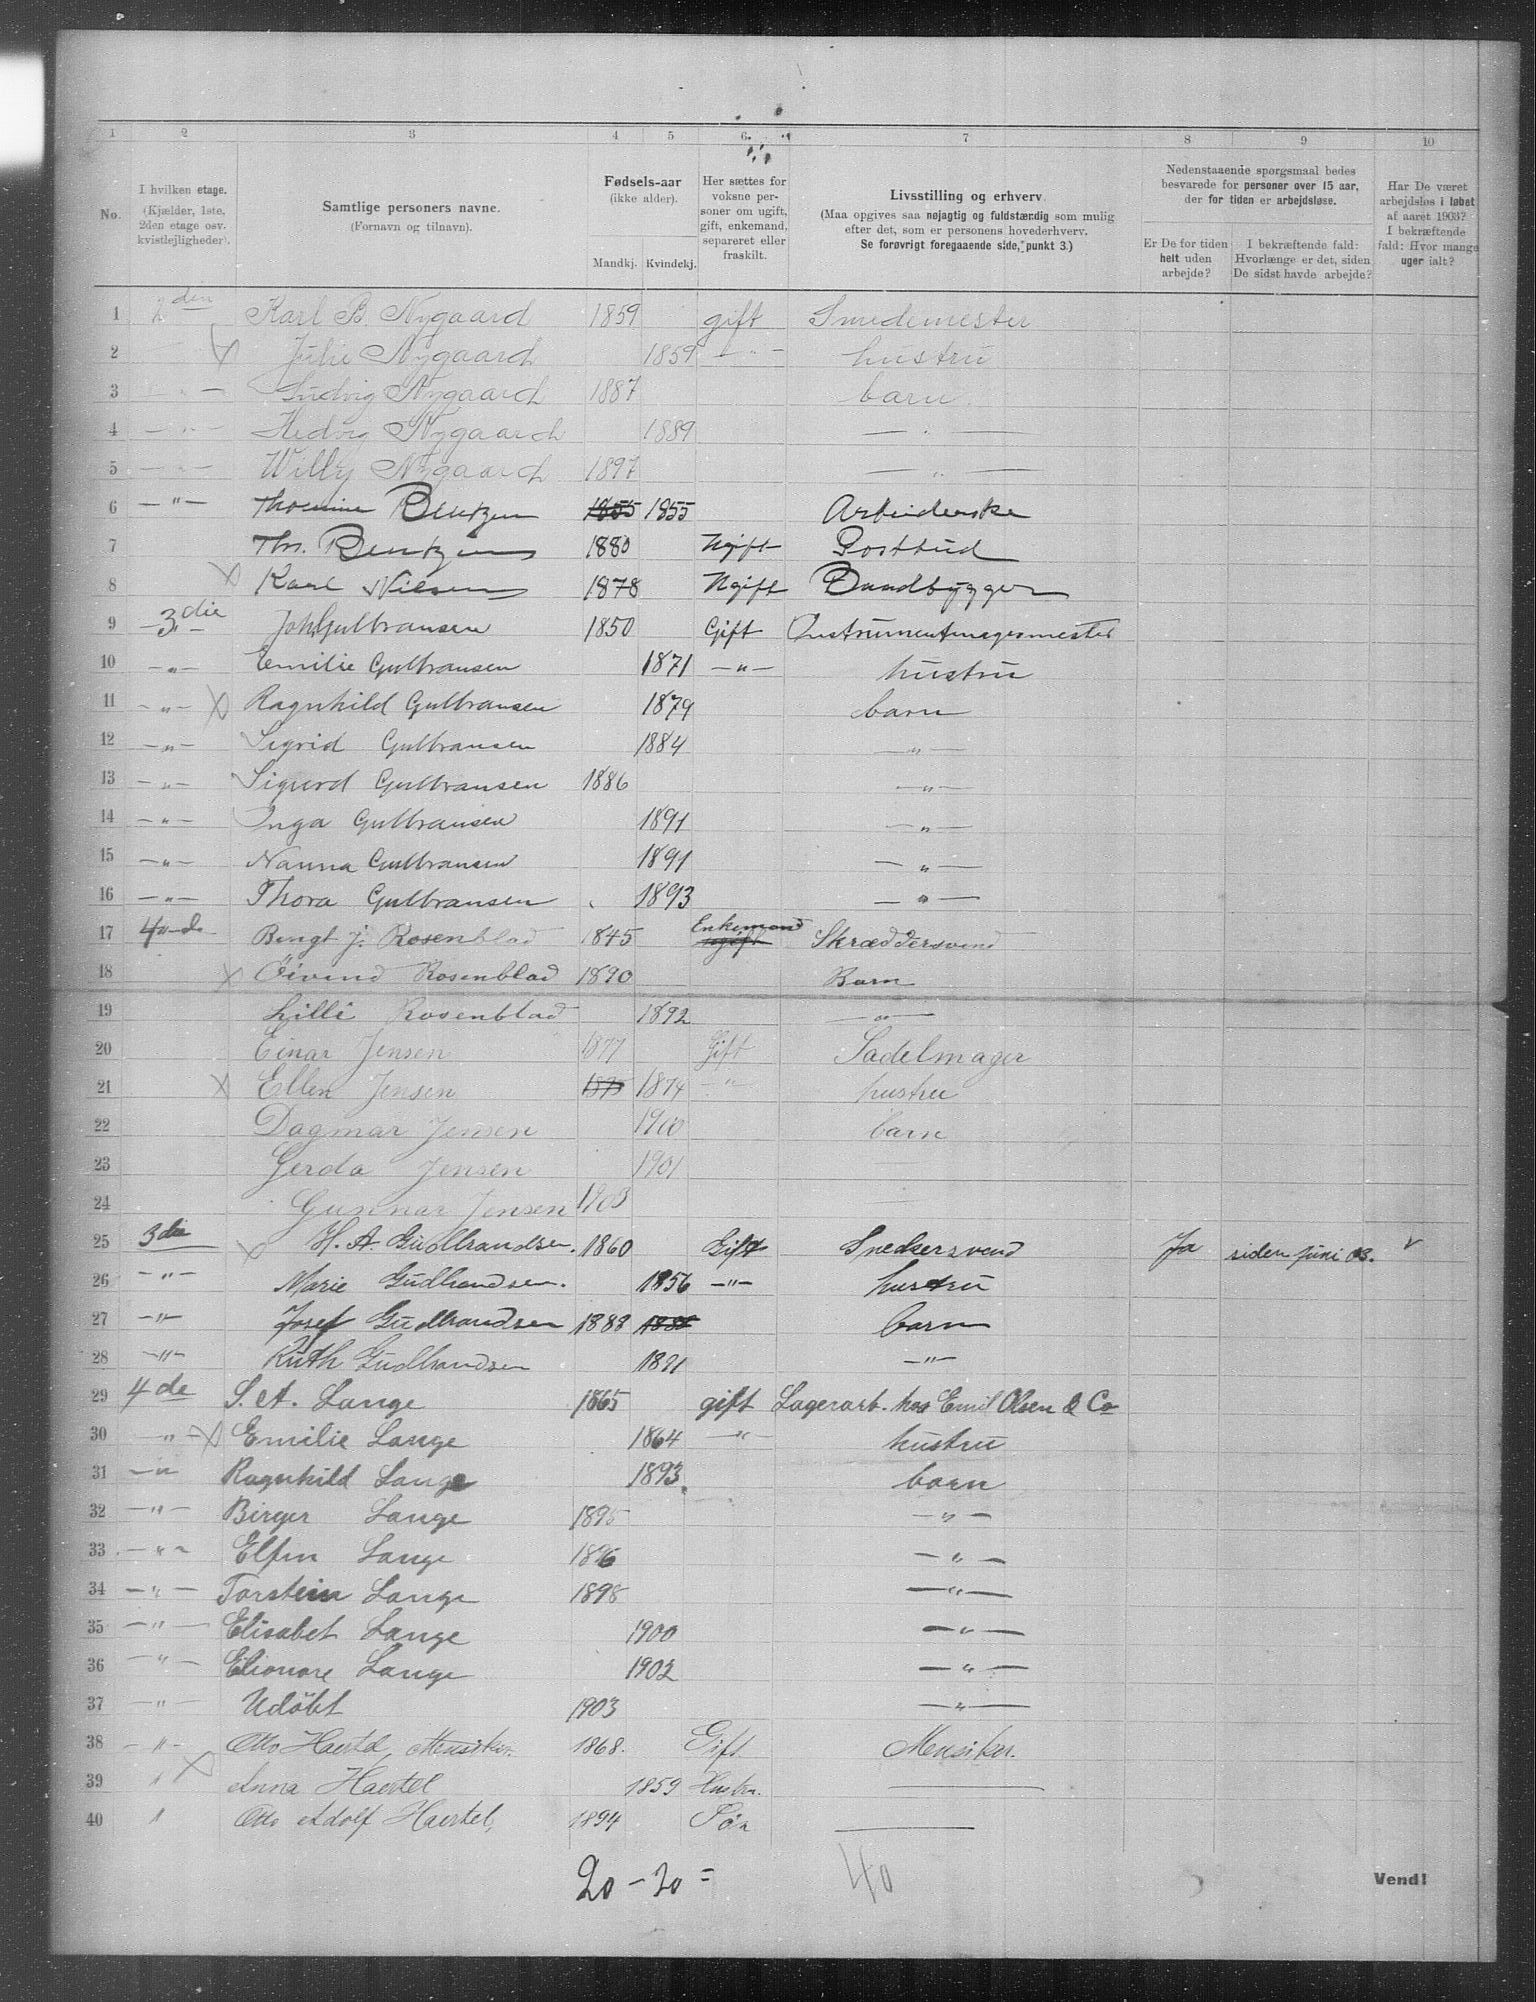 1 2 3 4 5 6 7 8 9 10
No.
I hvilken etage.
(Kjælder, 1ste,
2den etage osv.
kvistleiligheder).
Samtlige personers navne.
(Fornavn og tilnavn).
Fødsels-aar
(ikke alder).
Mandkj. Kvindekj.
Her sættes for
voksne per-
soner om ugift,
gift, enkemand,
separeret eller
fraskilt.
Livsstilling og erhverv.
(Maa opgives saa nøjagtig og fuldstærdig som mulig
efter det, som er personens hovederhverv.
Se forøvrigt foregaaende side, punkt 3.)
Nedenstaaende spørgsmaal bedes
besvarede for personer over 15 aar,
der for tiden er arbejdsløse.
Er De for tiden
helt uden
arbejde?
I bekræftende fald:
Hvorlænge er det, siden
De sidst havde arbejde?
Har De været
arbejdsløs i løbet
af aaret 1903?
I bekræftende
fald: Hvor mange
uger ialt?
1 2den Karl B. Nygaard 1859 gift Smedemester
2 Julie Nygaard 1859 — " — hustru
3 — " — Ludvig Nygaard 1887 barn
4 — " — Hedvig Nygaard 1889 — " —
5 — " — Willy Nygaard 1897 — " —
6 — " — Thomine Bentzen 1855 1855 Arbiderske
7 Th. Bentzen 1880 Ugift Postbud
8 Karl Nilsen 1878 Ugift Baandbygger
9 3die Joh Gulbransen 1850 Gift Instrumentmagermester
10 — " — Emilie Gulbransen 1871 — " — hustru
11 — " — Ragnhild Gulbransen 1879 barn
12 — " — Sigrid Gulbransen 1884 — " —
13 — " — Sigurd Gulbransen 1886 — " —
14 — " — Inga Gulbransen 1891 — " —
15 — " — Nanna Gulbransen 1891 — " —
16 — " — Thora Gulbransen 1893 — " —
17 4de Bengt J. Rosenblad 1845 Enkemand ugift Skræddersvend
18 Öivind Rosenblad 1890 Barn
19 Lilli Rosenblad 1892 — " —
20 Einar Jensen 1877 Gift Sadelmager
21 Ellen Jensen 1874 — " — hustru
22 Dagmar Jensen 1900 barn
23 Gerda Jensen 1901
24 Gunnar Jensen 1903
25 3die H. A. Gudbrandsen. 1860 Gift Snedkersvend Ja siden juni 03.
26 — " — Marie Gudbrandsen. 1856 — " — hustru
27 — " — Josef Gudbrandsen 1888 barn
28 — " — Ruth Gudbrandsen 1891 — " —
29 4de S. A. Lange 1865 gift Lagerarb. hos Emil Olsen & Co
30 — " — Emilie Lange 1864 — " — hustru
31 — " Ragnhild Lange 1893 barn
32 — " — Birger Lange 1895 — " —
33 — " — Elfin Lange 1896 — " —
34 — " — Torstein Lange 1898 — " —
35 — " — Elisabet Lange 1900 — " —
36 — " — Elionore Lange 1902 — " —
37 — " — Udöbt 1903 — " —
38 — " — Otto Haertel, Musiker. 1868. Gift Musiker.
39 " Anna Haertel 1859 Hustru.
40 " Otto Adolf Haertel, 1894 Sön
20 - 20 = 40
Vend!